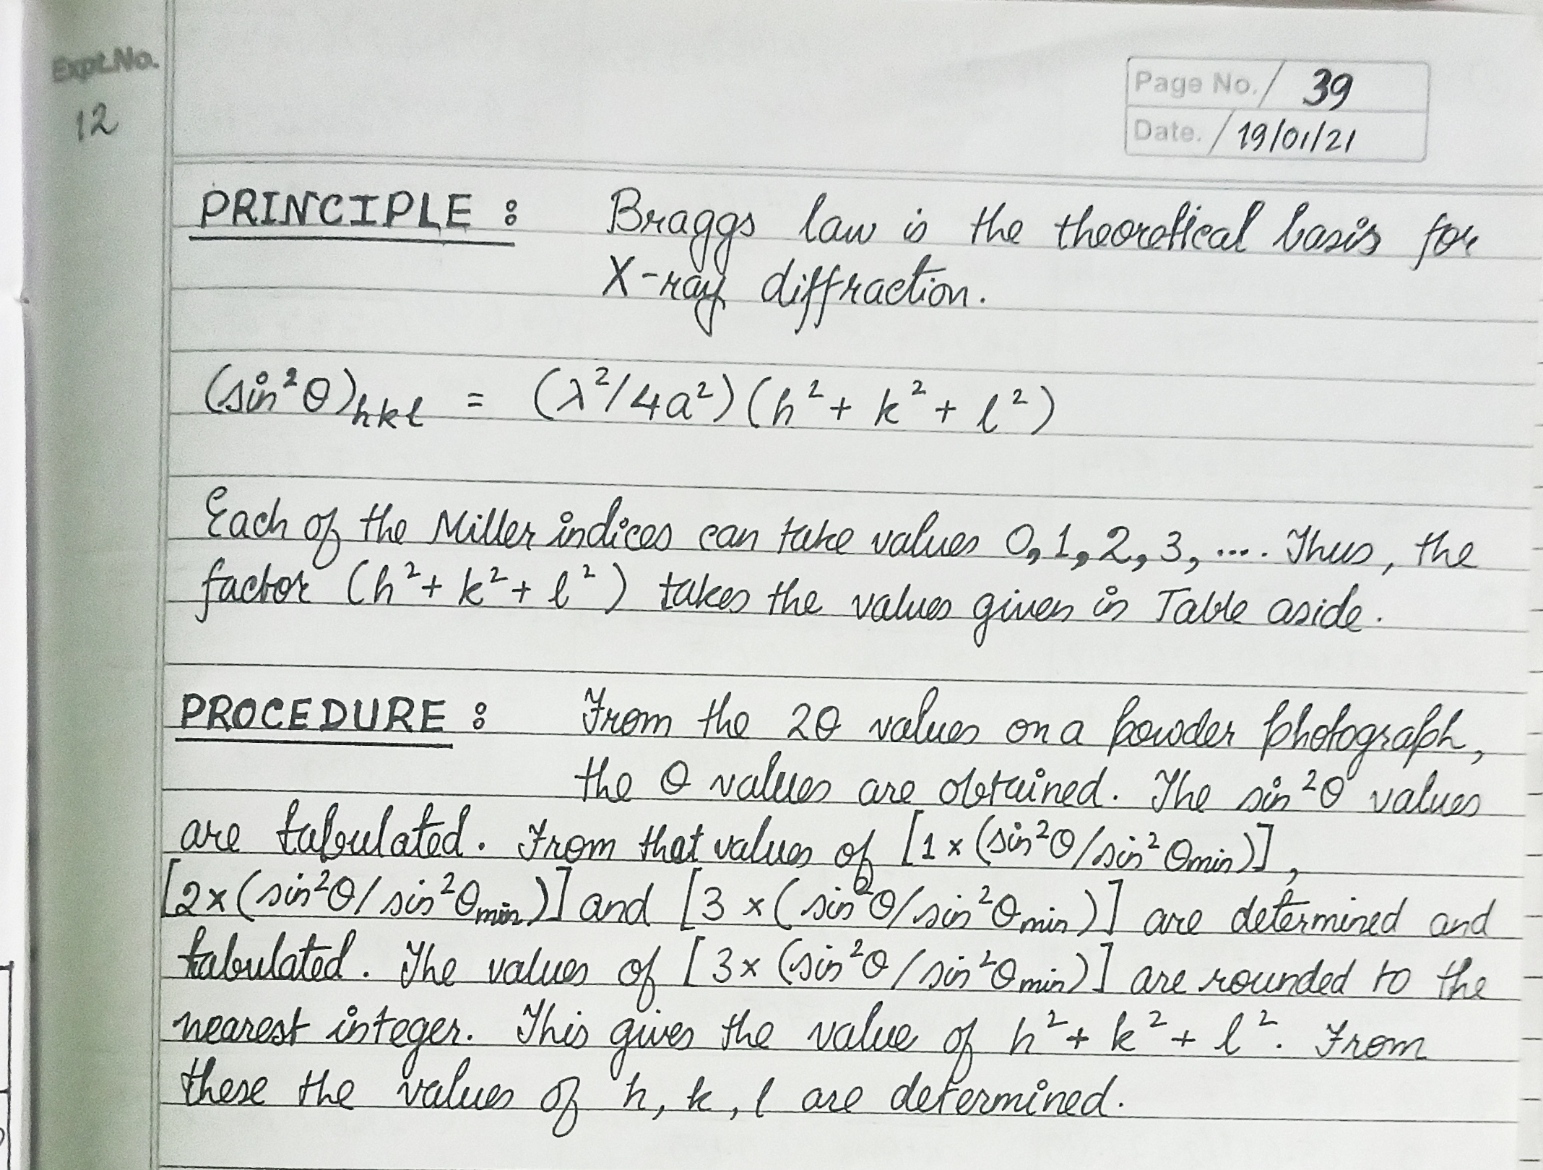 Expt.No.
12
Page No. / 39
Date. / 19/01/21
PRINCIPLE : Braggs law is the theoretical basis for
X-ray diffraction.
(sin²θ)hkl = (λ²/4a²)(h² + k² + l²)
Each of the Miller indices can take values 0, 1, 2, 3, .... Thus, the
factor (h² + k² + l²) takes the values given in Table aside.
PROCEDURE : From the 2θ values on a powder photograph,
the θ values are obtained. The sin²θ values
are tabulated. From that values of [1 × (sin²θ/sin²θmin)],
[2 × (sin²θ/sin²θmin)] and [3 × (sin²θ/sin²θmin)] are determined and
tabulated. The values of [3 × (sin²θ/sin²θmin)] are rounded to the
nearest integer. This gives the value of h² + k² + l². From
these the values of h, k, l are determined.